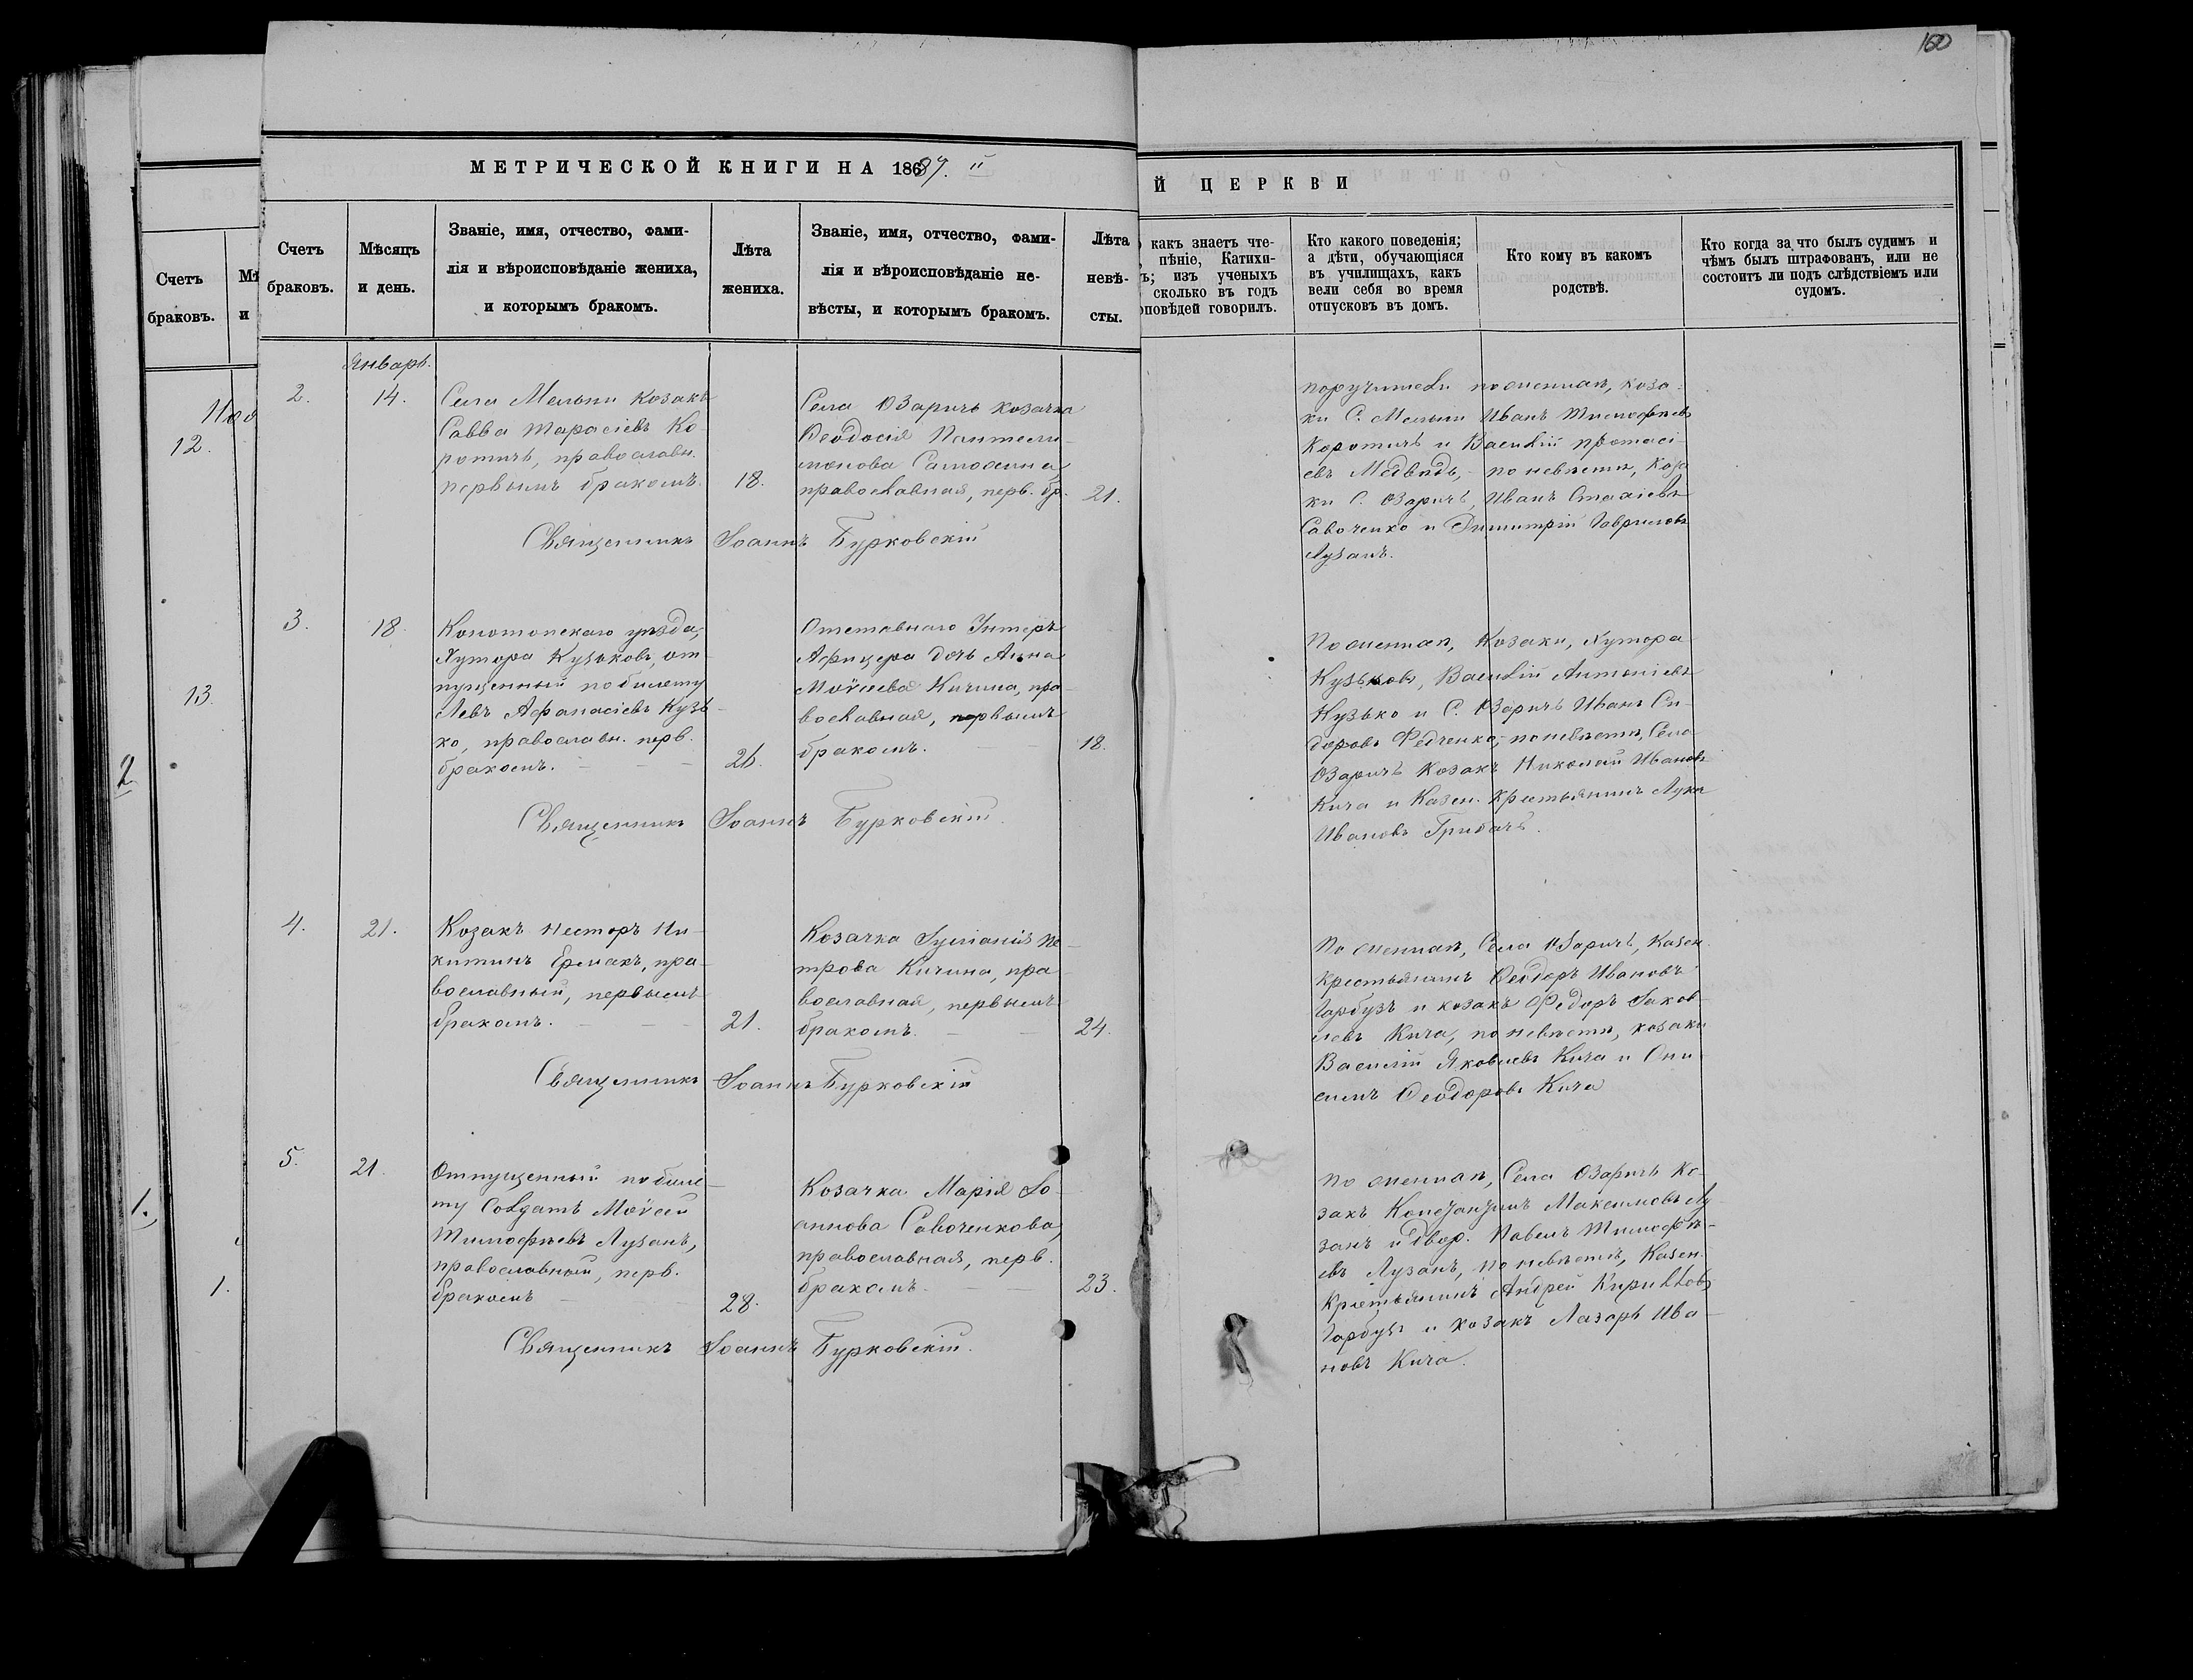 160
МЕТРИЧЕСКОЙ КНИГИ НА 1867.
Й ЦЕРКВИ
Счетъ
браковъ.
Счетъ
браковъ.
Мѣсяцъ
и день.
Званіе, имя, отчество, фами-
лія и вѣроисповѣданіе жениха,
и которымъ бракомъ.
Лѣта
жениха.
Званіе, имя, отчество, фами-
лія и вѣроисповѣданіе не-
вѣсты, и которымъ бракомъ.
Лѣта
невѣ-
сты.
какъ знаетъ чте-
пѣніе, Катихи-
изъ ученыхъ
сколько въ годъ
говорилъ.
Кто какого поведенія;
а дѣти, обучающіяся
въ училищахъ, какъ
вели себя во время
отпусковъ въ домъ.
Кто кому въ какомъ
родствѣ.
Кто когда за что былъ судимъ и
чѣмъ былъ штрафованъ, или не
состоитъ ли подъ слѣдствіемъ или
судомъ.
12.
13.
2
1.
1.
Январь.
2.
14.
Села Мельни козакъ
Савва Тарасіевъ Ко-
ротичъ, православн.
первымъ бракомъ.
18.
Села Озаричъ козачка
Ѳеодосія Пантели-
монова
православная, перв. бр.
21.
Священникъ Іоаннъ Бурковскій
поручители по женихѣ, коза-
ки С. Мельни Иванъ Тимофѣевъ
Коротичъ и Василій Протасі-
евъ Медвѣдь, по невѣстѣ, коза
ки С. Озаричъ, Иванъ
Савоченко и Димитрій Гавриловъ
Лузанъ.
3.
18.
Конотопскаго уѣзда,
Хутора Кузьковъ, от-
пущенный по билету
Левъ Афанасіевъ Кузь-
ко, православн. перв.
бракомъ.
26.
Отставного Унтеръ
Афицера дочь Анна
Моѵсеева Кичина, пра-
вославная, первымъ
бракомъ.
18.
Священникъ Іоаннъ Бурковскій.
По женихѣ, Козаки, Хутора
Кузьковъ, Василій Антоніевъ
Кузько и С. Озаричъ Иванъ Си-
доровъ Федченко, по невѣстѣ, Села
Озаричъ Козакъ Николай Ивановъ
Кича и Казен. Крестьянинъ Лука
Ивановъ Грибачъ.
4.
21.
Козакъ Несторъ Ни-
китинъ Ермакъ, пра-
вославный, первымъ
бракомъ.
21.
Козачка Іуліанія Пе-
трова Кичина, пра-
вославная, первымъ
бракомъ.
24.
Священникъ Іоаннъ Бурковскій
По женихѣ, Села Озаричъ, Казен.
Крестьянинъ Ѳеодоръ Ивановъ
Гарбузъ и козакъ Федоръ Іаков-
левъ Кича, по невѣстѣ, козаки
Василій Яковлевъ Кича и Они-
симъ Ѳеодоровъ Кича
5.
21.
Отпущенный по биле-
ту Солдатъ Моѵсей
Тимофѣевъ Лузанъ,
православный, перв.
бракомъ
28.
Козачка Марія Іо-
аннова Савоченкова,
православная, перв.
бракомъ.
23.
Священникъ Іоаннъ Бурковскій.
По женихѣ, Села Озаричъ Ко-
закъ Константинъ Максимовъ Лу-
занъ и двор. Павелъ Тимофѣ-
евъ Лузанъ, по невѣстѣ, Казен.
Крестьянинъ Андрей Кирилловъ
Гарбузъ и козакъ Лазарь Ива-
новъ Кича.